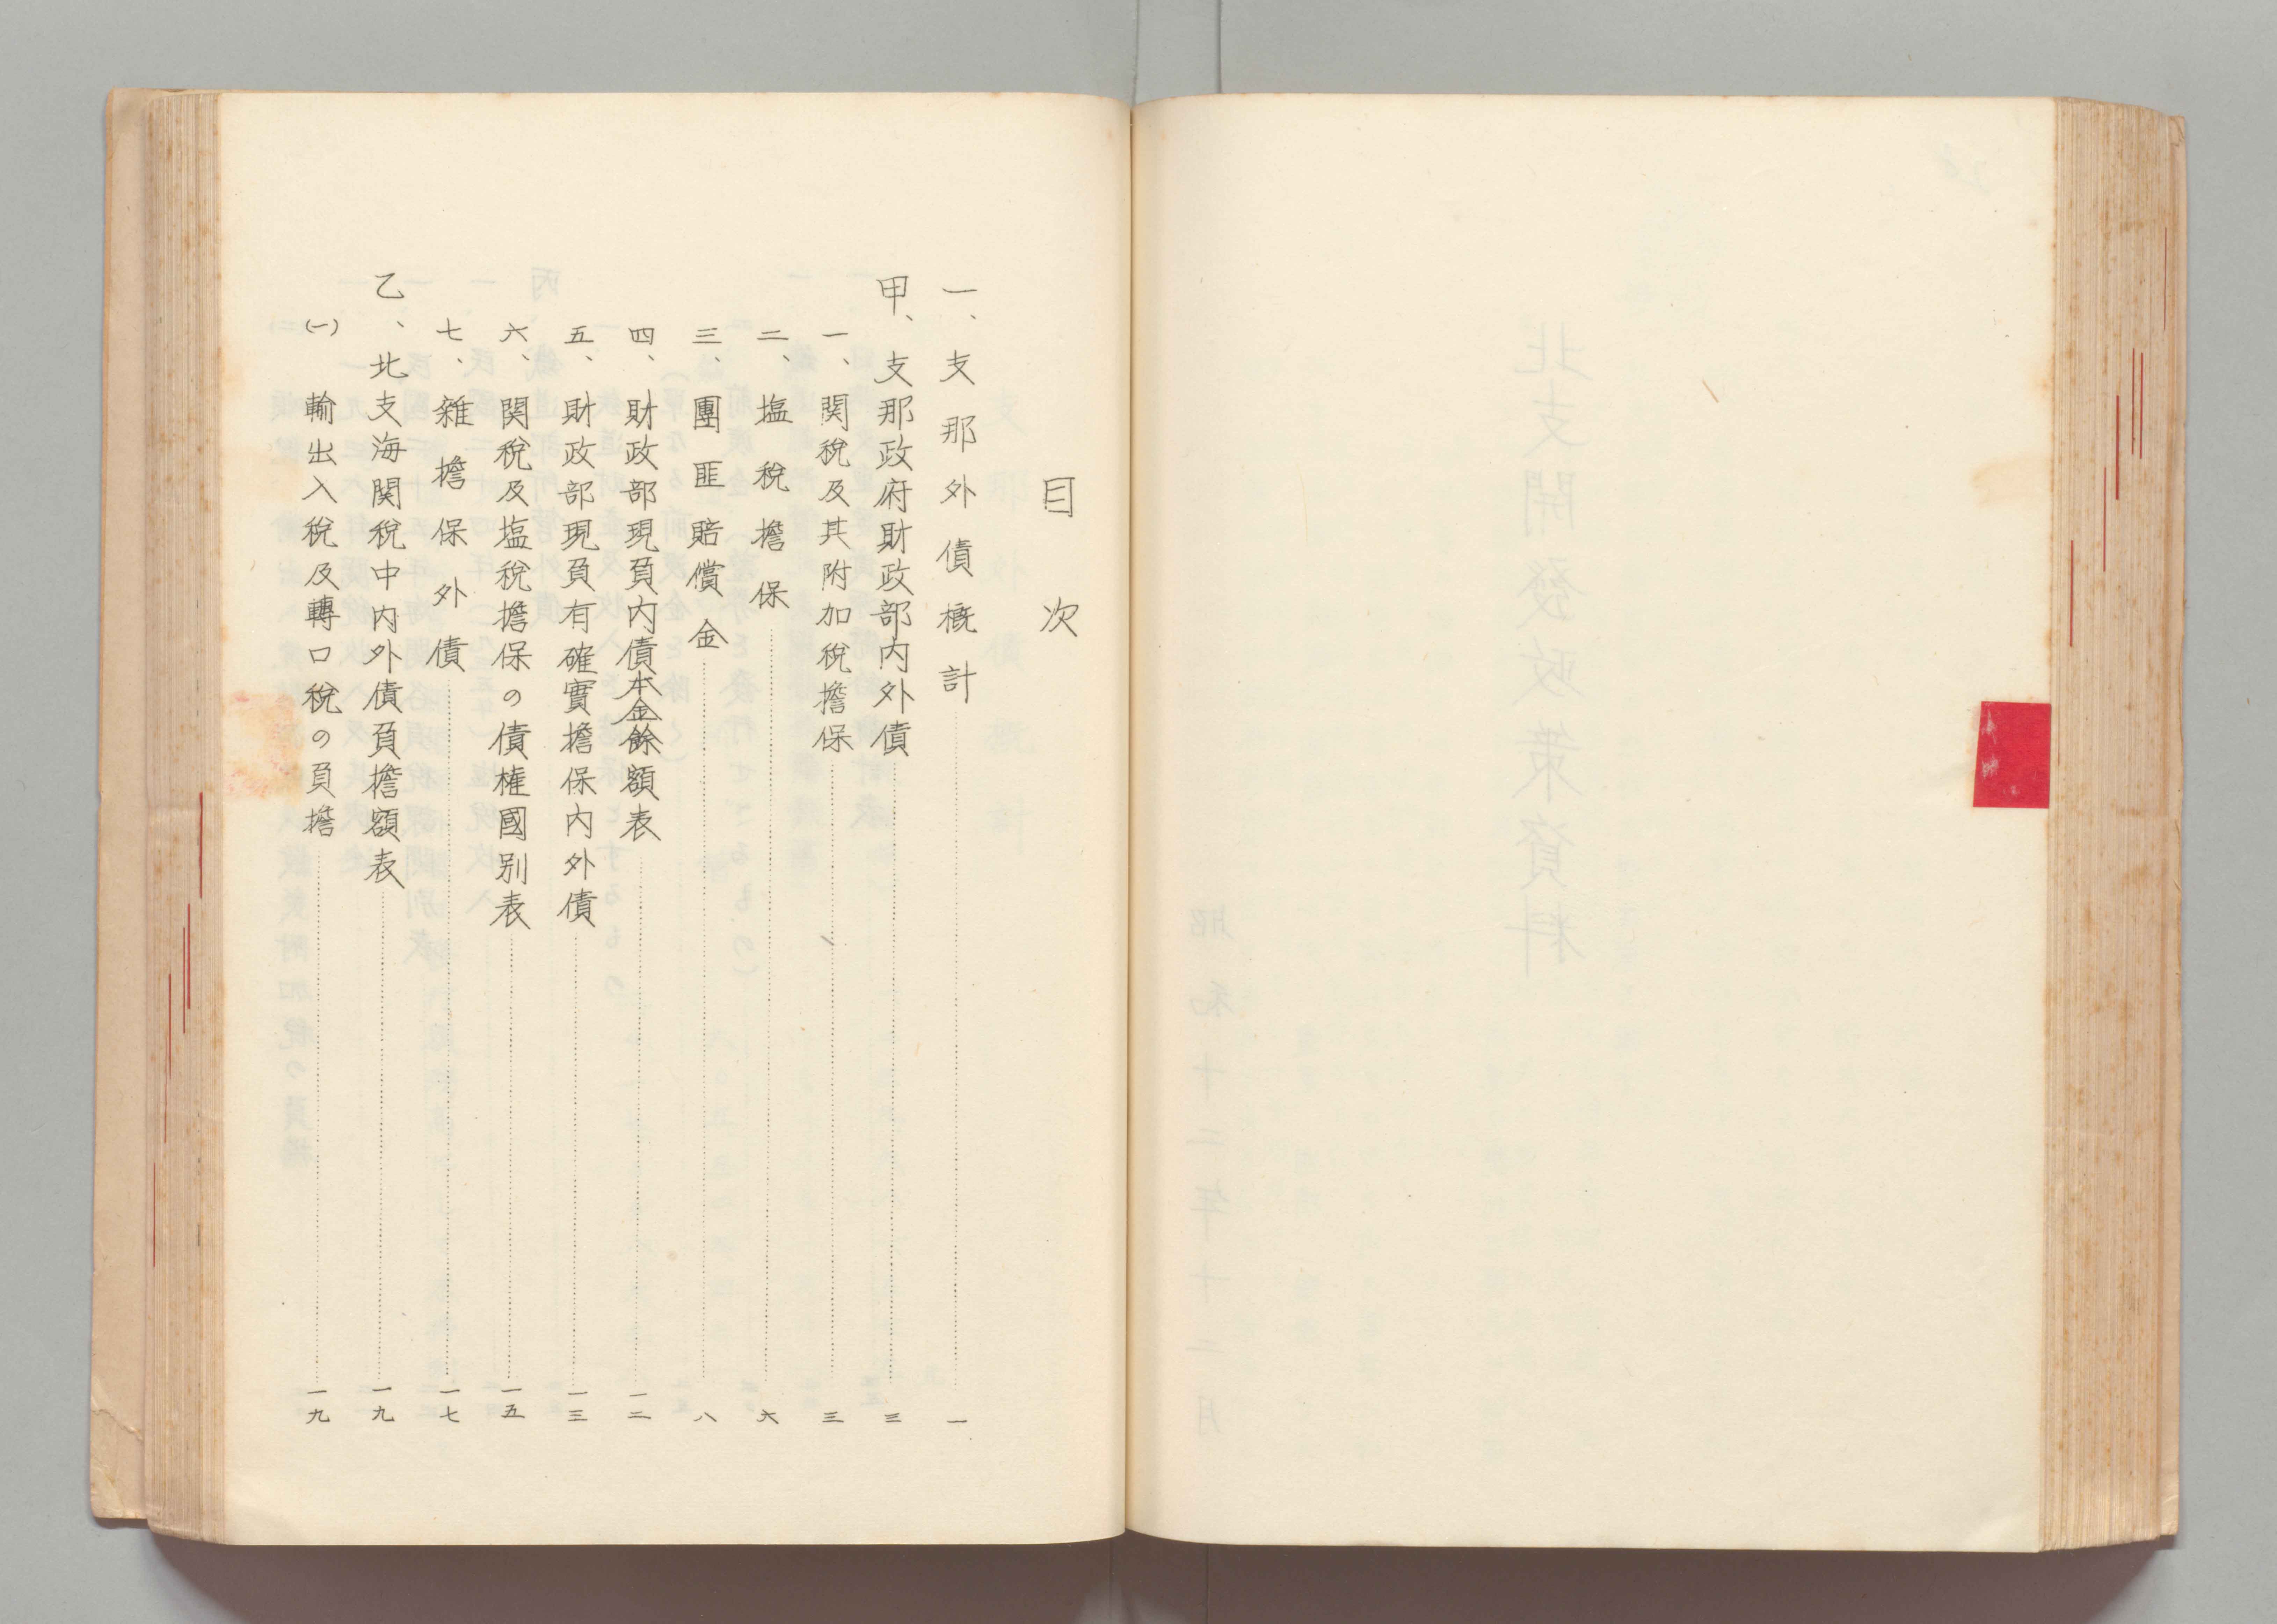 目次
一、支那外債概計……一
甲、支那政府財政部内外債……三
一、関税及其附加税擔保……三
二、塩税擔保……六
三、團匪賠償金……八
四、財政部現負内債本金餘額表……一二
五、財政部現負有確實擔保内外債……一三
六、関税及塩税擔保の債権國別表……一五
七、雜擔保外債……一七
乙、北支海関税中内外債負擔額表……一九
(一)輸出入税及轉口税の負擔……一九